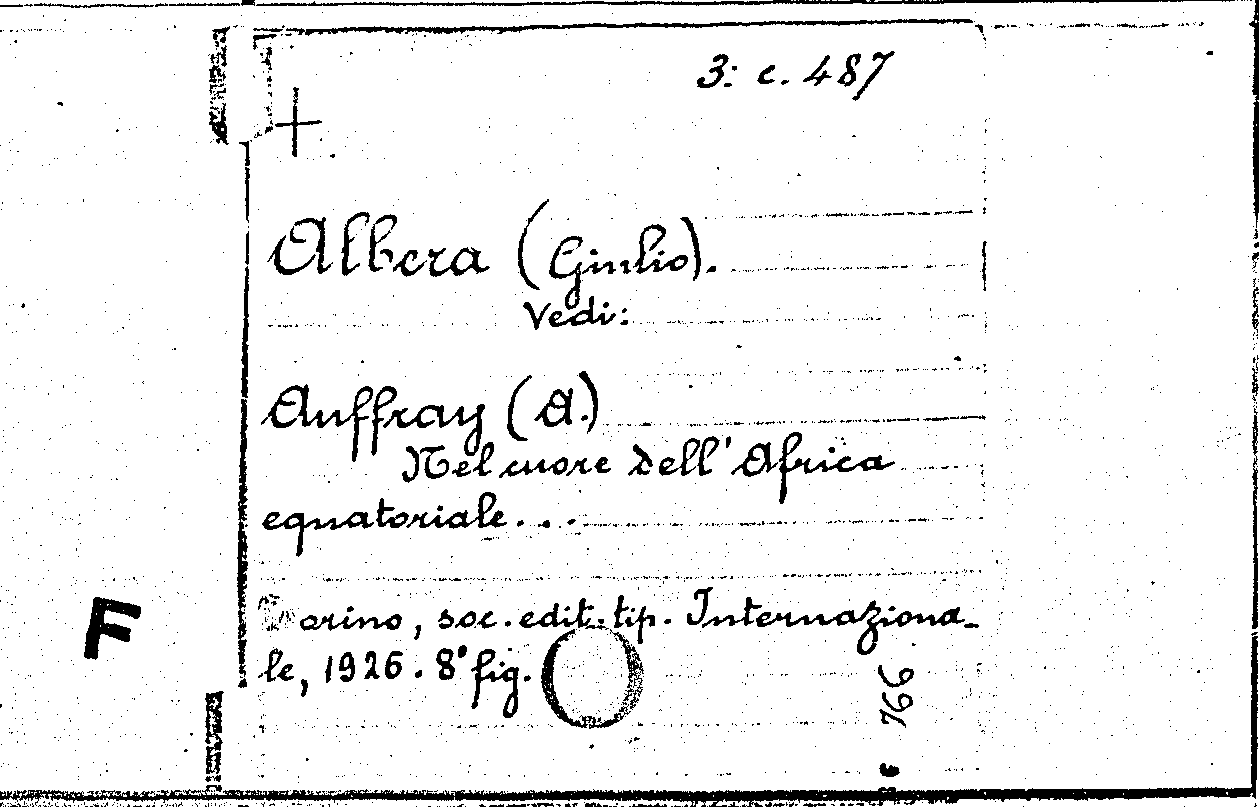 3: c. 487
Albera (Giulio).
Vedi:
Auffray (A.)
Nel cuore dell'Africa
equatoriale...
Torino, soc. edit. tip. Internaziona-
le, 1926. 8° fig.
F
766